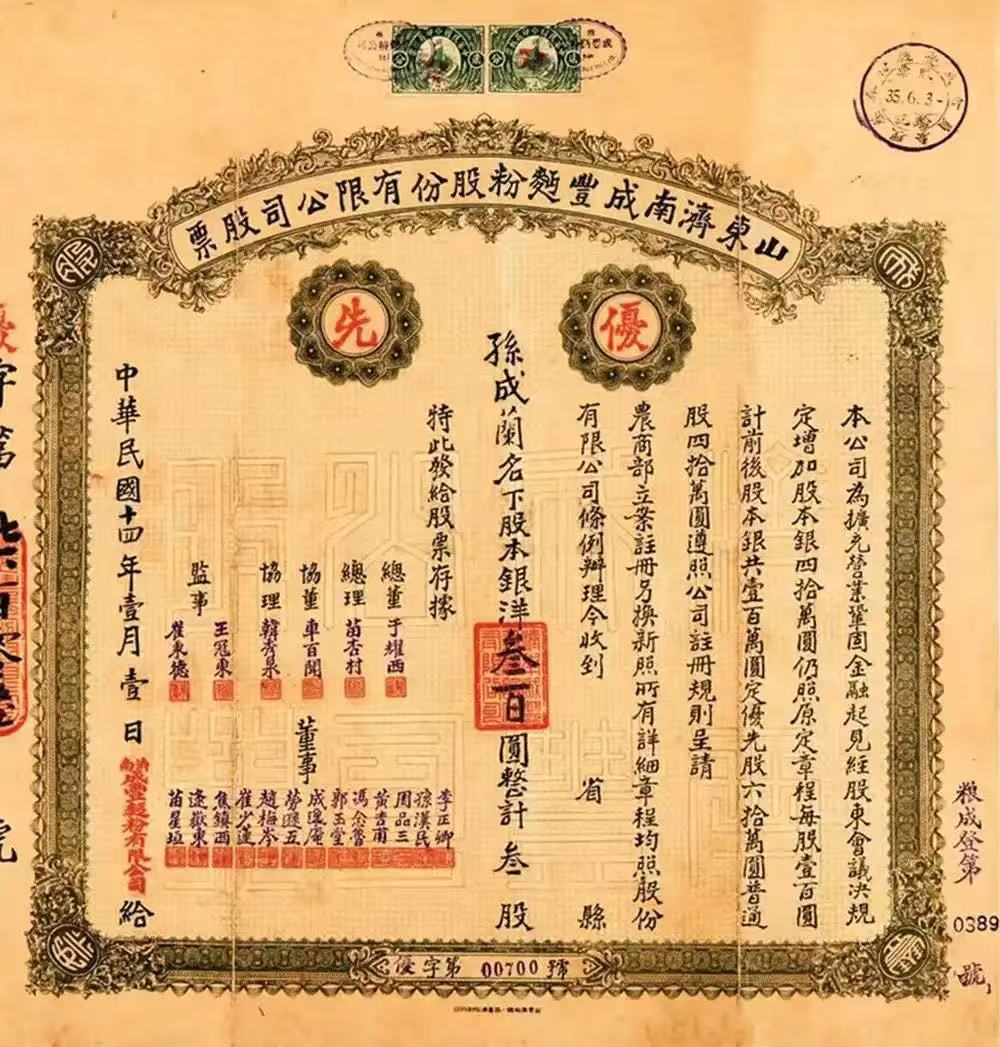 山東濟南成豐麵粉股份有限公司股票
優
先
本公司為擴充營業鞏固金融起見經股東會議決規
定增加股本銀四拾萬圓仍照原定章程每股壹百圓
計前後股本銀共壹百萬圓定優先股六拾萬圓普通
股四拾萬圓遵照公司註冊規則呈請
農商部立案註冊另換新照所有詳細章程均照股份
有限公司條例辦理今收到 省 縣
孫成蘭名下股本銀洋叁百圓整計叁股
特此發給股票存據
總董 于耀西
總理 苗杏村
協董 車百聞
協理 韓秀泉
監事 王冠東
崔東德
董事
李正卿
徐漢民
周品三
黃杏甫
馮念魯
郭玉堂
成逸庵
勞遜五
趙梅岑
崔少蓮
焦鎮西
逄嶽東
苗星垣
中華民國十四年壹月壹日
濟南成豐麵粉有限公司
給
優字第 00700 號
35.6.3-
粮成登第
0389
號
優字第
號